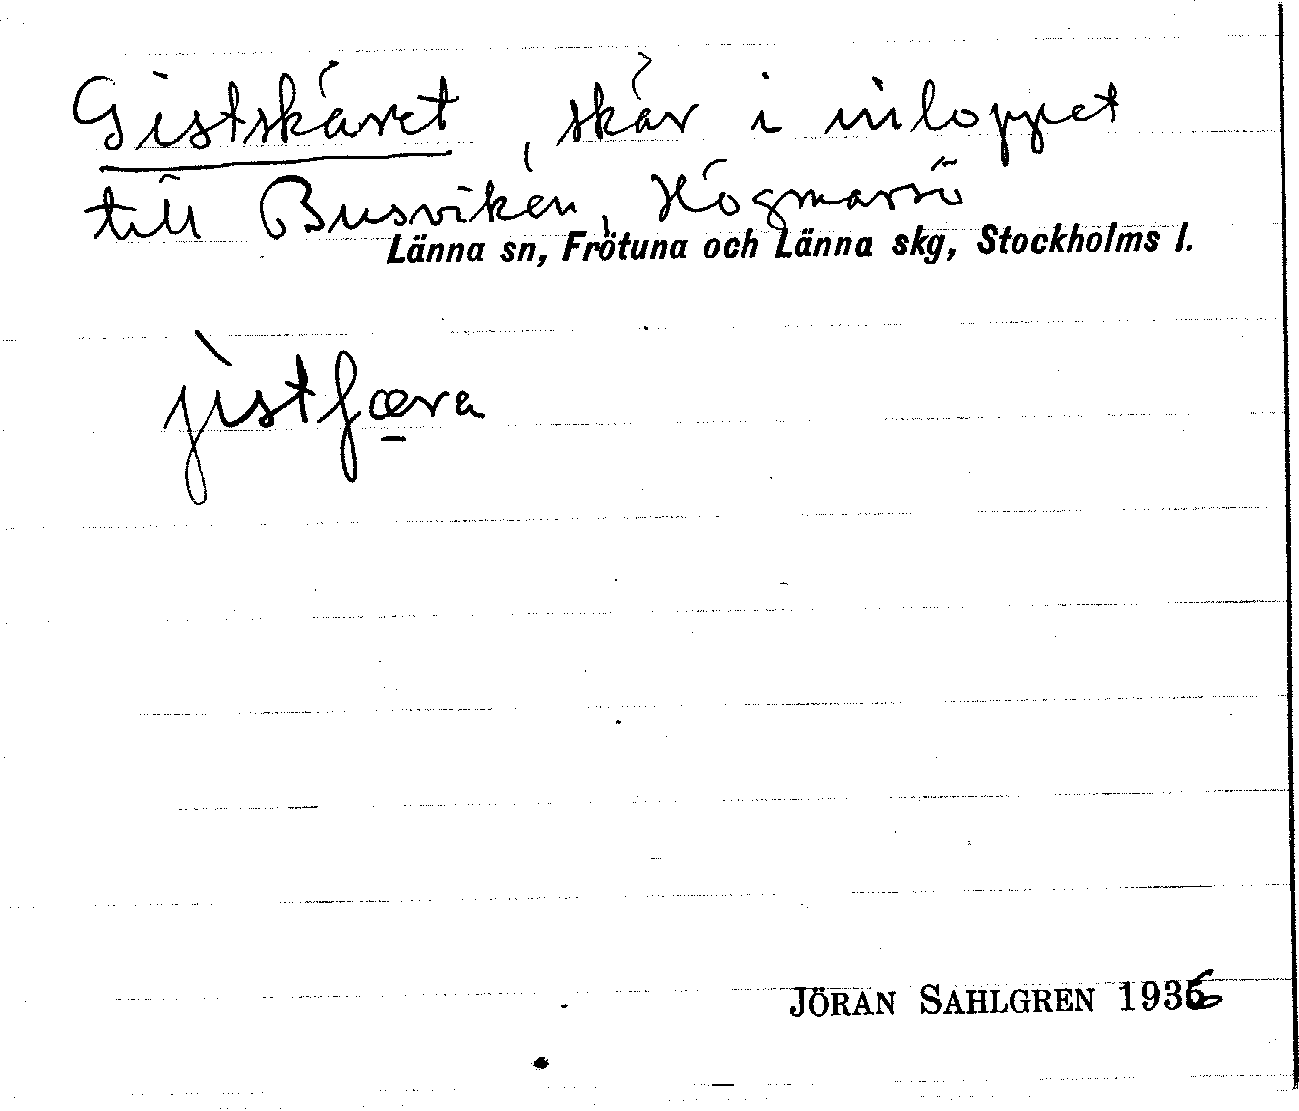 Gistskäret, skär i inloppet
till Busviken, Högmarsö
Länna sn, Frötuna och Länna skg, Stockholms l.
jìstʃæra
JÖRAN SAHLGREN 1936